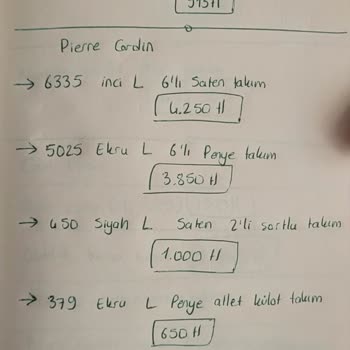 Pierre Cardin
→ 6335 inci L 6'lı Saten takım
4.250 tl
→ 5025 Ekru L 6'lı Penye takım
3.850 tl
→ 450 Siyah L Saten 2'li şortlu takım
1.000 tl
→ 379 Ekru L Penye atlet külot takım
650 tl